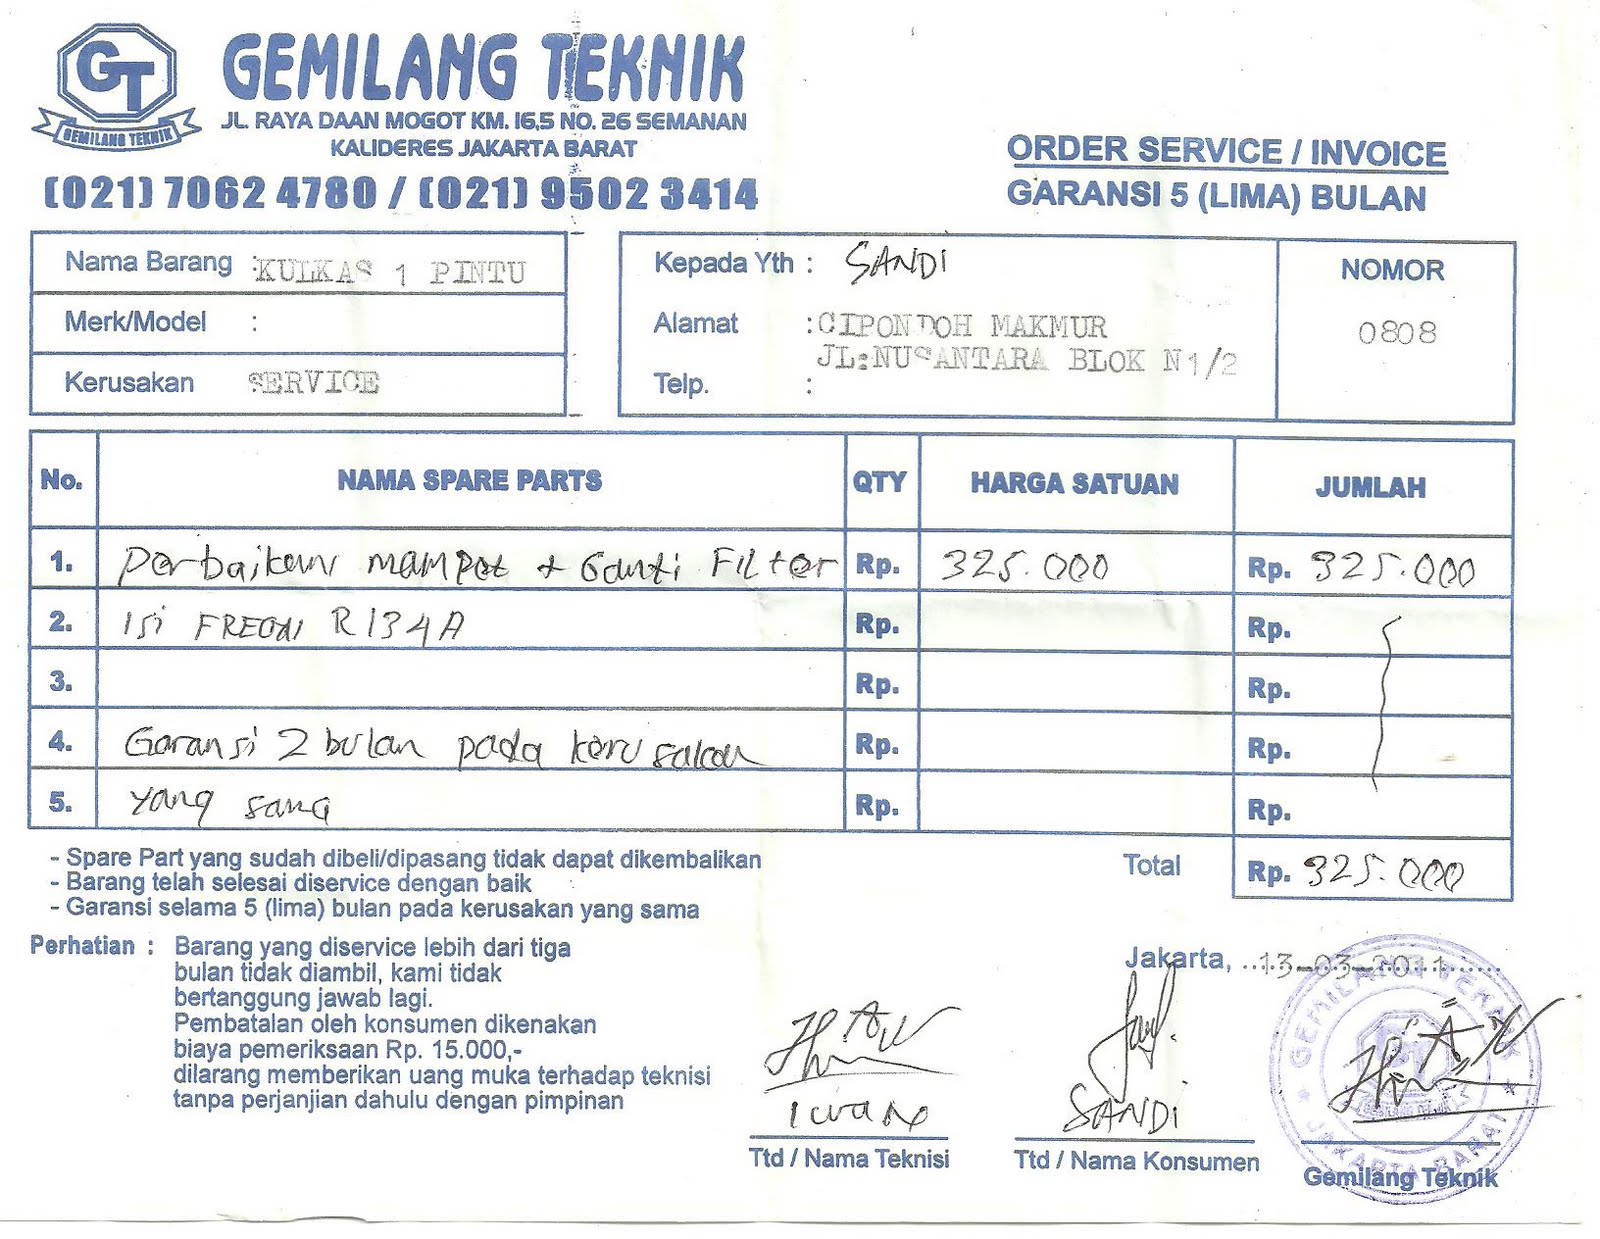 GT
GEMILANG TEKNIK
GEMILANG TEKNIK
JL. RAYA DAAN MOGOT KM. 16,5 NO. 26 SEMANAN
KALIDERES JAKARTA BARAT
(021) 7062 4780 / (021) 9502 3414
ORDER SERVICE / INVOICE
GARANSI 5 (LIMA) BULAN
Nama Barang : KULKAS 1 PINTU
Merk/Model :
Kerusakan SERVICE
Kepada Yth : SANDI
Alamat : CIPONDOH MAKMUR
JL:NUSANTARA BLOK N1/2
Telp. :
NOMOR
0808
No. NAMA SPARE PARTS QTY HARGA SATUAN JUMLAH
1. Perbaikan mampet + Ganti Filter Rp. 325.000 Rp. 325.000
2. Isi FREON R134A Rp. Rp.
3. Rp. Rp.
4. Garansi 2 bulan pada kerusakan Rp. Rp.
5. yang sama Rp. Rp.
Total Rp. 325.000
- Spare Part yang sudah dibeli/dipasang tidak dapat dikembalikan
- Barang telah selesai diservice dengan baik
- Garansi selama 5 (lima) bulan pada kerusakan yang sama
Perhatian : Barang yang diservice lebih dari tiga
bulan tidak diambil, kami tidak
bertanggung jawab lagi.
Pembatalan oleh konsumen dikenakan
biaya pemeriksaan Rp. 15.000,-
dilarang memberikan uang muka terhadap teknisi
tanpa perjanjian dahulu dengan pimpinan
Jakarta, 13-03-2011
SANDI
Ttd / Nama Teknisi
Ttd / Nama Konsumen
Gemilang Teknik
GEMILANG TEKNIK
JAKARTA BARAT